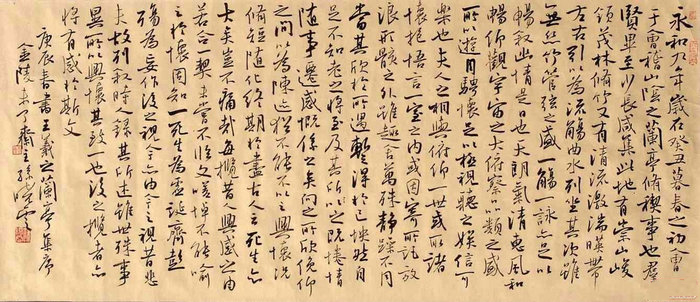 永和九年歲在癸丑暮春之初會
于會稽山陰之蘭亭脩稧事也群
賢畢至少長咸集此地有崇山峻
領茂林脩竹又有清流激湍暎帶
左右引以為流觴曲水列坐其次雖
無絲竹管弦之盛一觴一詠亦足以
暢敘幽情是日也天朗氣清惠風和
暢仰觀宇宙之大俯察品類之盛
所以遊目騁懷足以極視聽之娛信可
樂也夫人之相與俯仰一世或取諸
懷抱悟言一室之內或因寄所託放
浪形骸之外雖趣舍萬殊靜躁不同
當其欣於所遇暫得於己怏然自
足不知老之將至及其所之既惓情
隨事遷感慨係之矣向之所欣俛仰
之間以為陳迹猶不能不以之興懷況
脩短隨化終期於盡古人云死生亦
大矣豈不痛哉每攬昔人興感之由
若合一契未嘗不臨文嗟悼不能喻
之於懷固知一死生為虛誕齊彭
殤為妄作後之視今亦由今之視昔悲
夫故列敘時人錄其所述雖世殊事
異所以興懷其致一也後之攬者亦
將有感於斯文
庚辰春書王羲之蘭亭集序
金陵未了齋主孫曉雲